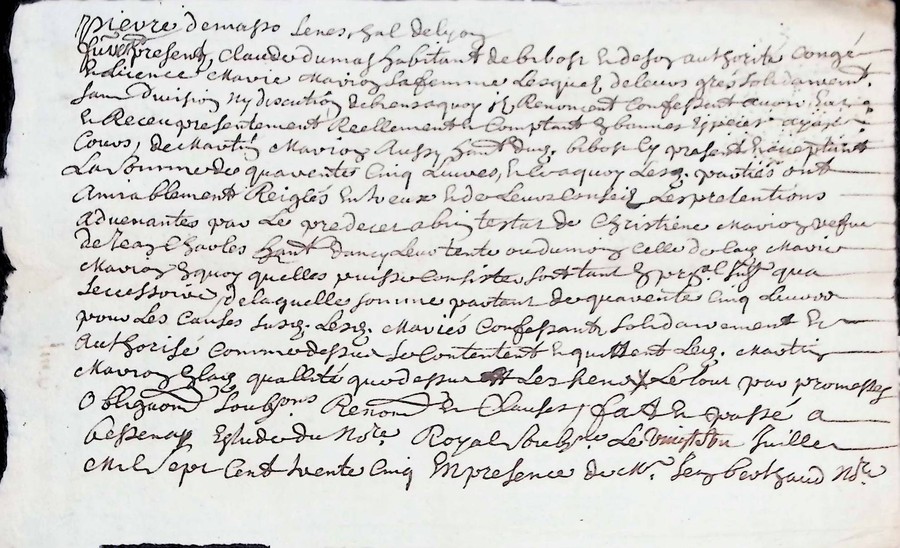 Pierre Demasso Seneschal de Lyon
furent presents, Claude dumas habitant de bibost et de son authorité congé
et licence Marie Mavroy sa femme Lesquels de leurs grés solidairement
sans Division ny discution de biens a quoy ils Renoncent Confessent avoir
et Receu presentement Reellement en Comptant en bonnes Espeices ayant
Cours, de Martin Mavroy Aussy hant dud. bibost Cy present et acceptant
La Somme de quarente Cinq Livres, a quoy Lesd. parties ont
Amiablement Reiglés entre eux et de Leur Conseil Les pretentions
advenantes par Le predeces abintestat de Christine Mavroy vefve
de Jean Charles hant dancy Leur tente ou du moins Celle de lad. Marie
Mavroy En quoy quelles puisse Consister tant En pr.al
accessoires, de laquelle somme partant de quarente Cinq Livres
pour Les Causes susd. Lesd. Mariés Confessants solidairement Et
Authorisé Comme dessus se Contentent en quittent Led. Martin
Mavroy En lad. quallité que dessus Le tout par promesses
Obligaons Soubsons Renons Et Clauses, fait Et passé a
bessenay Estude du Nore. Royal Soubsné Le Vingt Juillet
Mil Sept Cent trente Cinq En presence de Mr. Jean berthaud Nore.